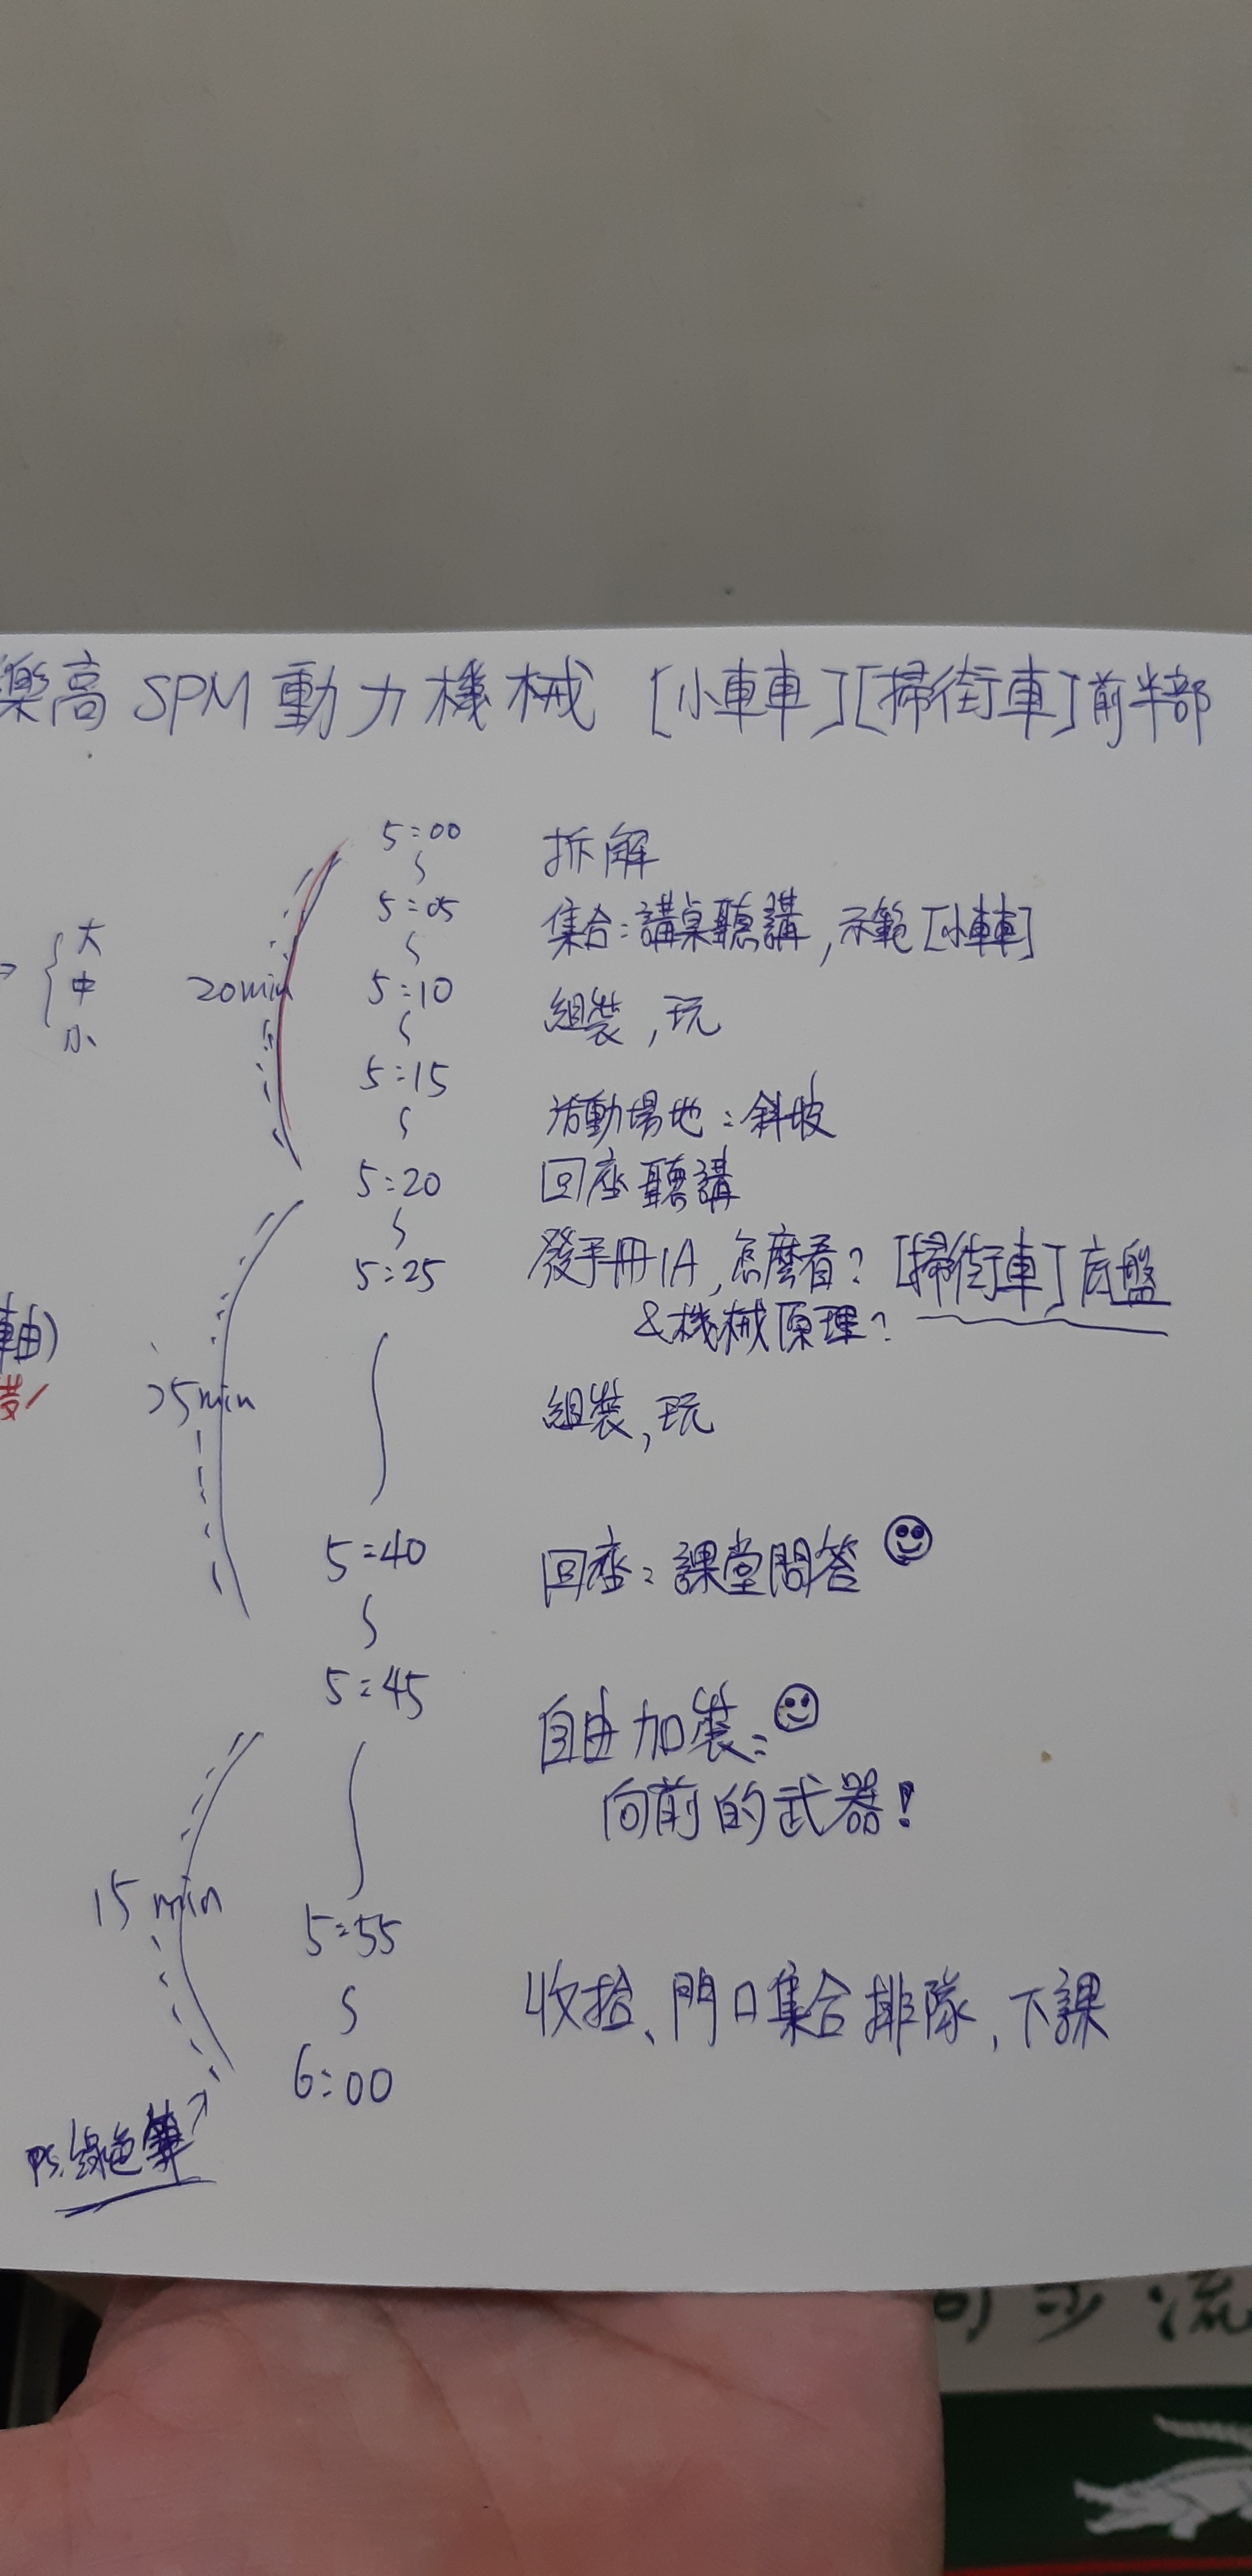 樂高 SPM 動力機械 [小車車][掃街車]前半部
5:00
拆解
5:05
集合:講桌聽講,示範[小車車]
大
中
小
20min
5:10
組裝,玩
5:15
活動場地:斜坡
5:20
回座聽講
5:25
發手冊1A,怎麼看?[掃街車]底盤
&機械原理?
軸)
25min
組裝,玩
5:40
回座:課堂問答
5:45
自由加裝:
向前的武器!
15min
5:55
收拾、門口集合排隊,下課
6:00
PS.綠色筆